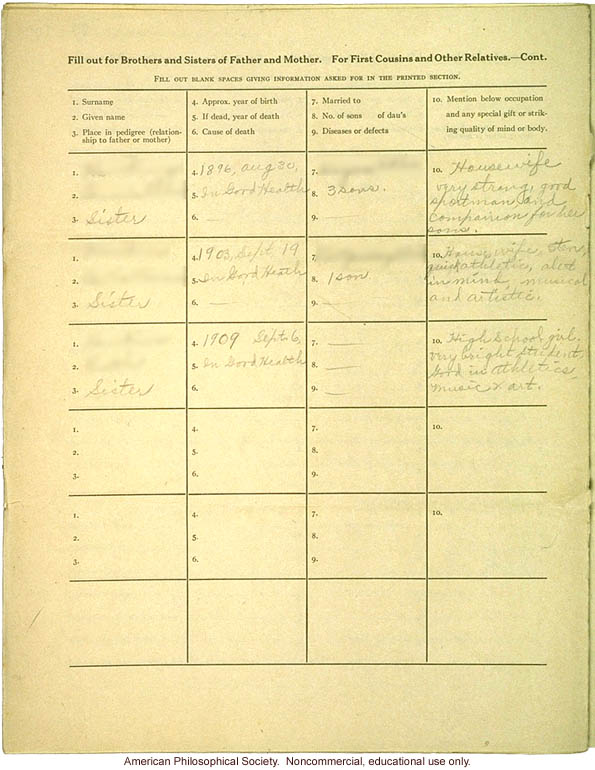 Fill out for Brothers and Sisters of Father and Mother. For First Cousins and Other Relatives.—Cont.
FILL OUT BLANK SPACES GIVING INFORMATION ASKED FOR IN THE PRINTED SECTION.
1. Surname
2. Given name
3. Place in pedigree (relation-
ship to father or mother)
4. Approx. year of birth
5. If dead, year of death
6. Cause of death
7. Married to
8. No. of sons of dau's
9. Diseases or defects
10. Mention below occupation
and any special gift or strik-
ing quality of mind or body.
1.
2.
3. Sister
4. 1896, Aug 30,
5. In Good Health
6. —
7.
8. 3 sons.
9. —
10. Housewife
very strong, good
sportman and
compainion for her
sons.
1.
2.
3. Sister
4. 1903, Sept. 19
5. In Good Heath
6. —
7.
8. 1 son
9. —
10. House wife,
quick athletic, alert
in mind, musical
and artistic.
1.
2.
3. Sister
4. 1909 Sept. 6,
5. In Good Health
6.
7. —
8. —
9. —
10. High School girl,
very bright student,
Good in athletics,
music & art.
1.
2.
3.
4.
5.
6.
7.
8.
9.
10.
1.
2.
3.
4.
5.
6.
7.
8.
9.
10.
9
American Philosophical Society. Noncommercial, educational use only.